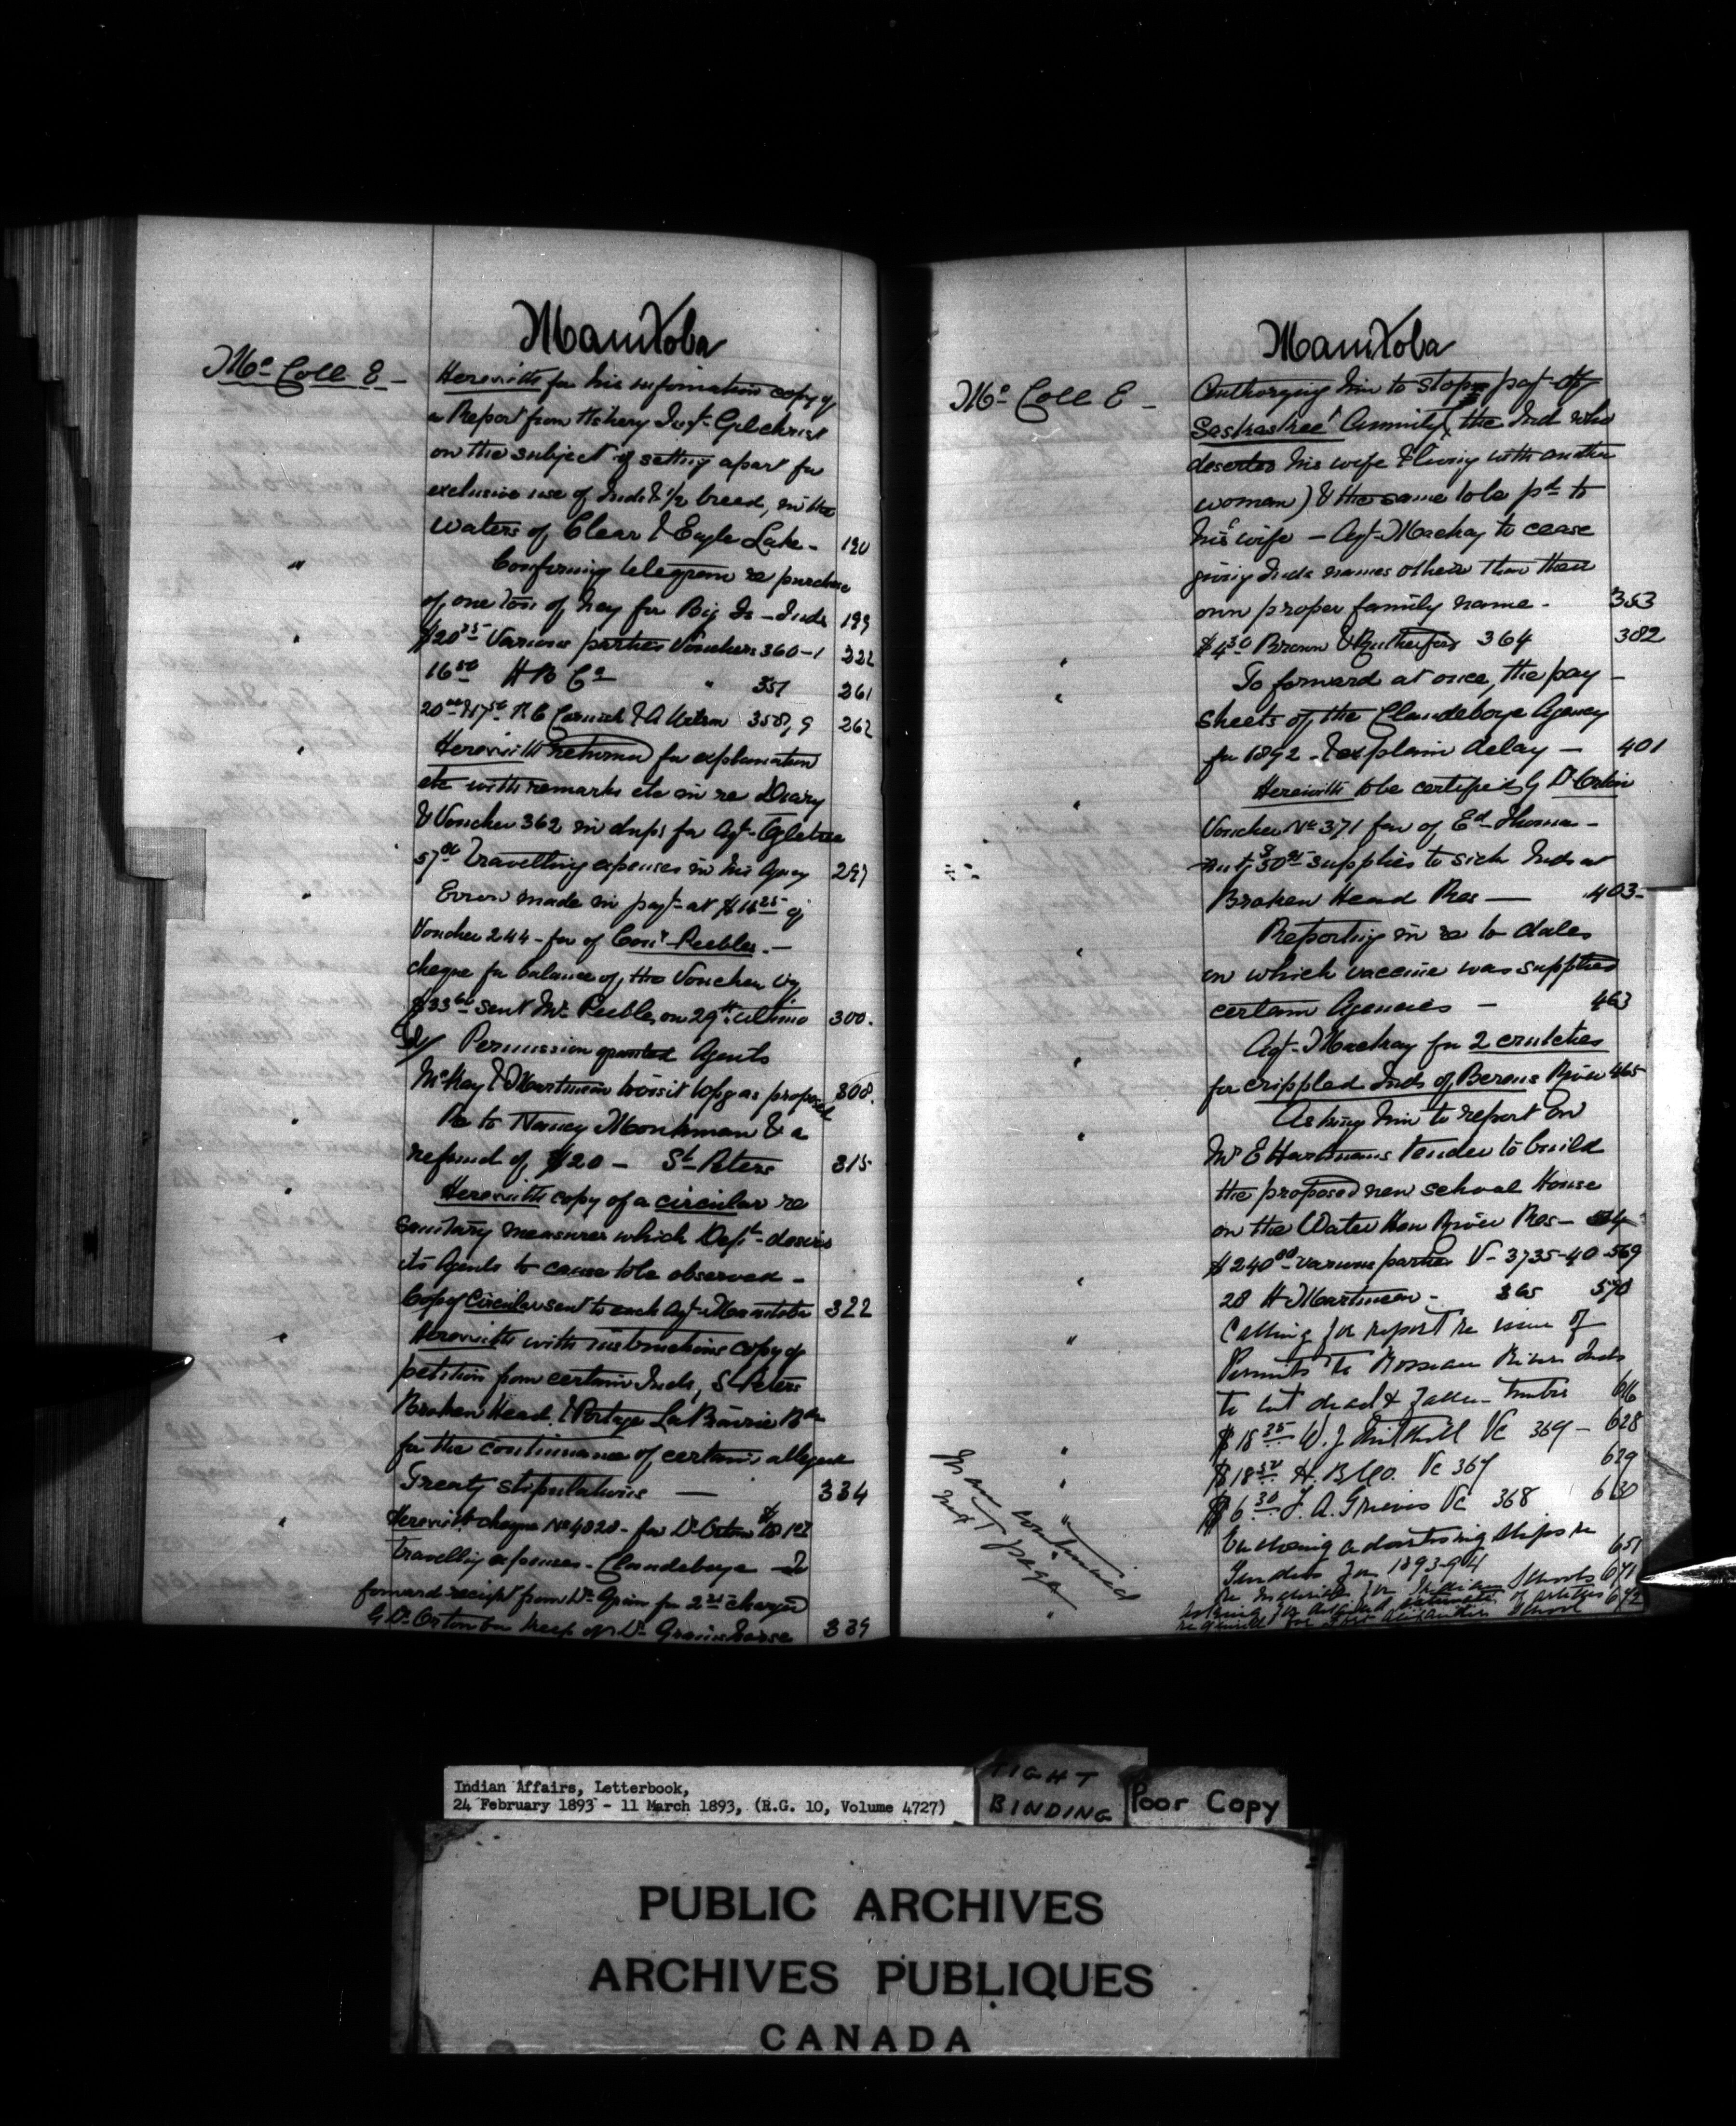 Manitoba
McColl E –
Herewith for his information copy of
a Report from Fishery Inspr Gilchrist
on the subject of setting apart for
exclusive use of Inds & 1/2 breed, in the
waters of Clear & Eagle Lake – 190
" Confirming telegram re purchase
of one ton of hay for Big Is – Inds 199
" $20 25 Various parties Vouchers 360–1 222
16 50 H B Co " 357 261
20 00 & 17 50 R C Cornish & A 358, 9 262
" Herewith returned for explanation
etc with remarks etc in re Diary
& Voucher 362 in dupl for Agt – Ogletree
57 travelling expenses in his Agency 297
" Error made in payt – at $16 25 of
Voucher 244 – fav of Peebles. –
cheque for balance of, Voucher viz
$33 60 sent Mr Peebles, on 29th ultimo 300.
Permission granted Agents
McKay & Martineau to visit Wpg as proposed 308.
" Re to Nancy Monkman & a
refund of, $20 – St Peters 315
" Herewith copy of a circular re
sanitary measures which Dept – desires
its Agents to cause to be observed –
Copy Circular sent to each Agt – Manitoba 322
" Herewith with instructions copy of
petition from certain Inds, St Peters
Broken Head, & Portage La Prairie
for the continuance of certain alleged
Treaty stipulations – 334
" Herewith cheque No 4020 – for Dr Orton
travelling expenses – Clandeboye – To
forward receipt from Dr for 2 charged
by Dr Orton for keep of Dr horse 339
Manitoba
McColl E –
Authorizing him to stop payt – of
Saskaskee's Annuity (the Ind who
deserted his wife & living with another
woman) & the same to be pd to
his wife – Agt – Mackay to cease
giving Inds names other than their
own proper family name – 353
" $4 30 Brown & Rutherford 364 382
" To forward at once, the pay –
sheets of, the Clandeboye Agency
for 1892 – & explain delay – 401
" Herewith to be certified by Dr Orton
Voucher No 371 fav of Ed Thomas –
supplies to sick Inds at
Broken Head Res – 403 –
" Reporting in re to dates
on which vaccine was supplied
certain Agencies – 463
" Agt – Mackay for 2 crutches
for crippled Inds of, Berens River 465
" Asking him to report on
Mr E Hartmans tender to build
the proposed new school House
on the Water Hen River Res –
" $240 00 various parties V – 3735–40 569
28 H Martineau – 365 570
" Calling for report re issue of
Permits to Rosseau River Inds
to cut dead & fallen timber 616
" $18 35 W. J. Vc 369 – 628
" $18 H. B. Co. Vc 367 629
" $6 30 J. A. Grieves Vc 368 630
" Enclosing advertising slips re
Tenders for 1893–94 651
Re material for Indian Schools 671
" Asking for detailed estimate of articles 672
required for School
Man continued
next page
Indian Affairs, Letterbook,
24 February 1893 - 11 March 1893, (R.G. 10, Volume 4727)
TIGHT
BINDING
Poor Copy
PUBLIC ARCHIVES
ARCHIVES PUBLIQUES
CANADA